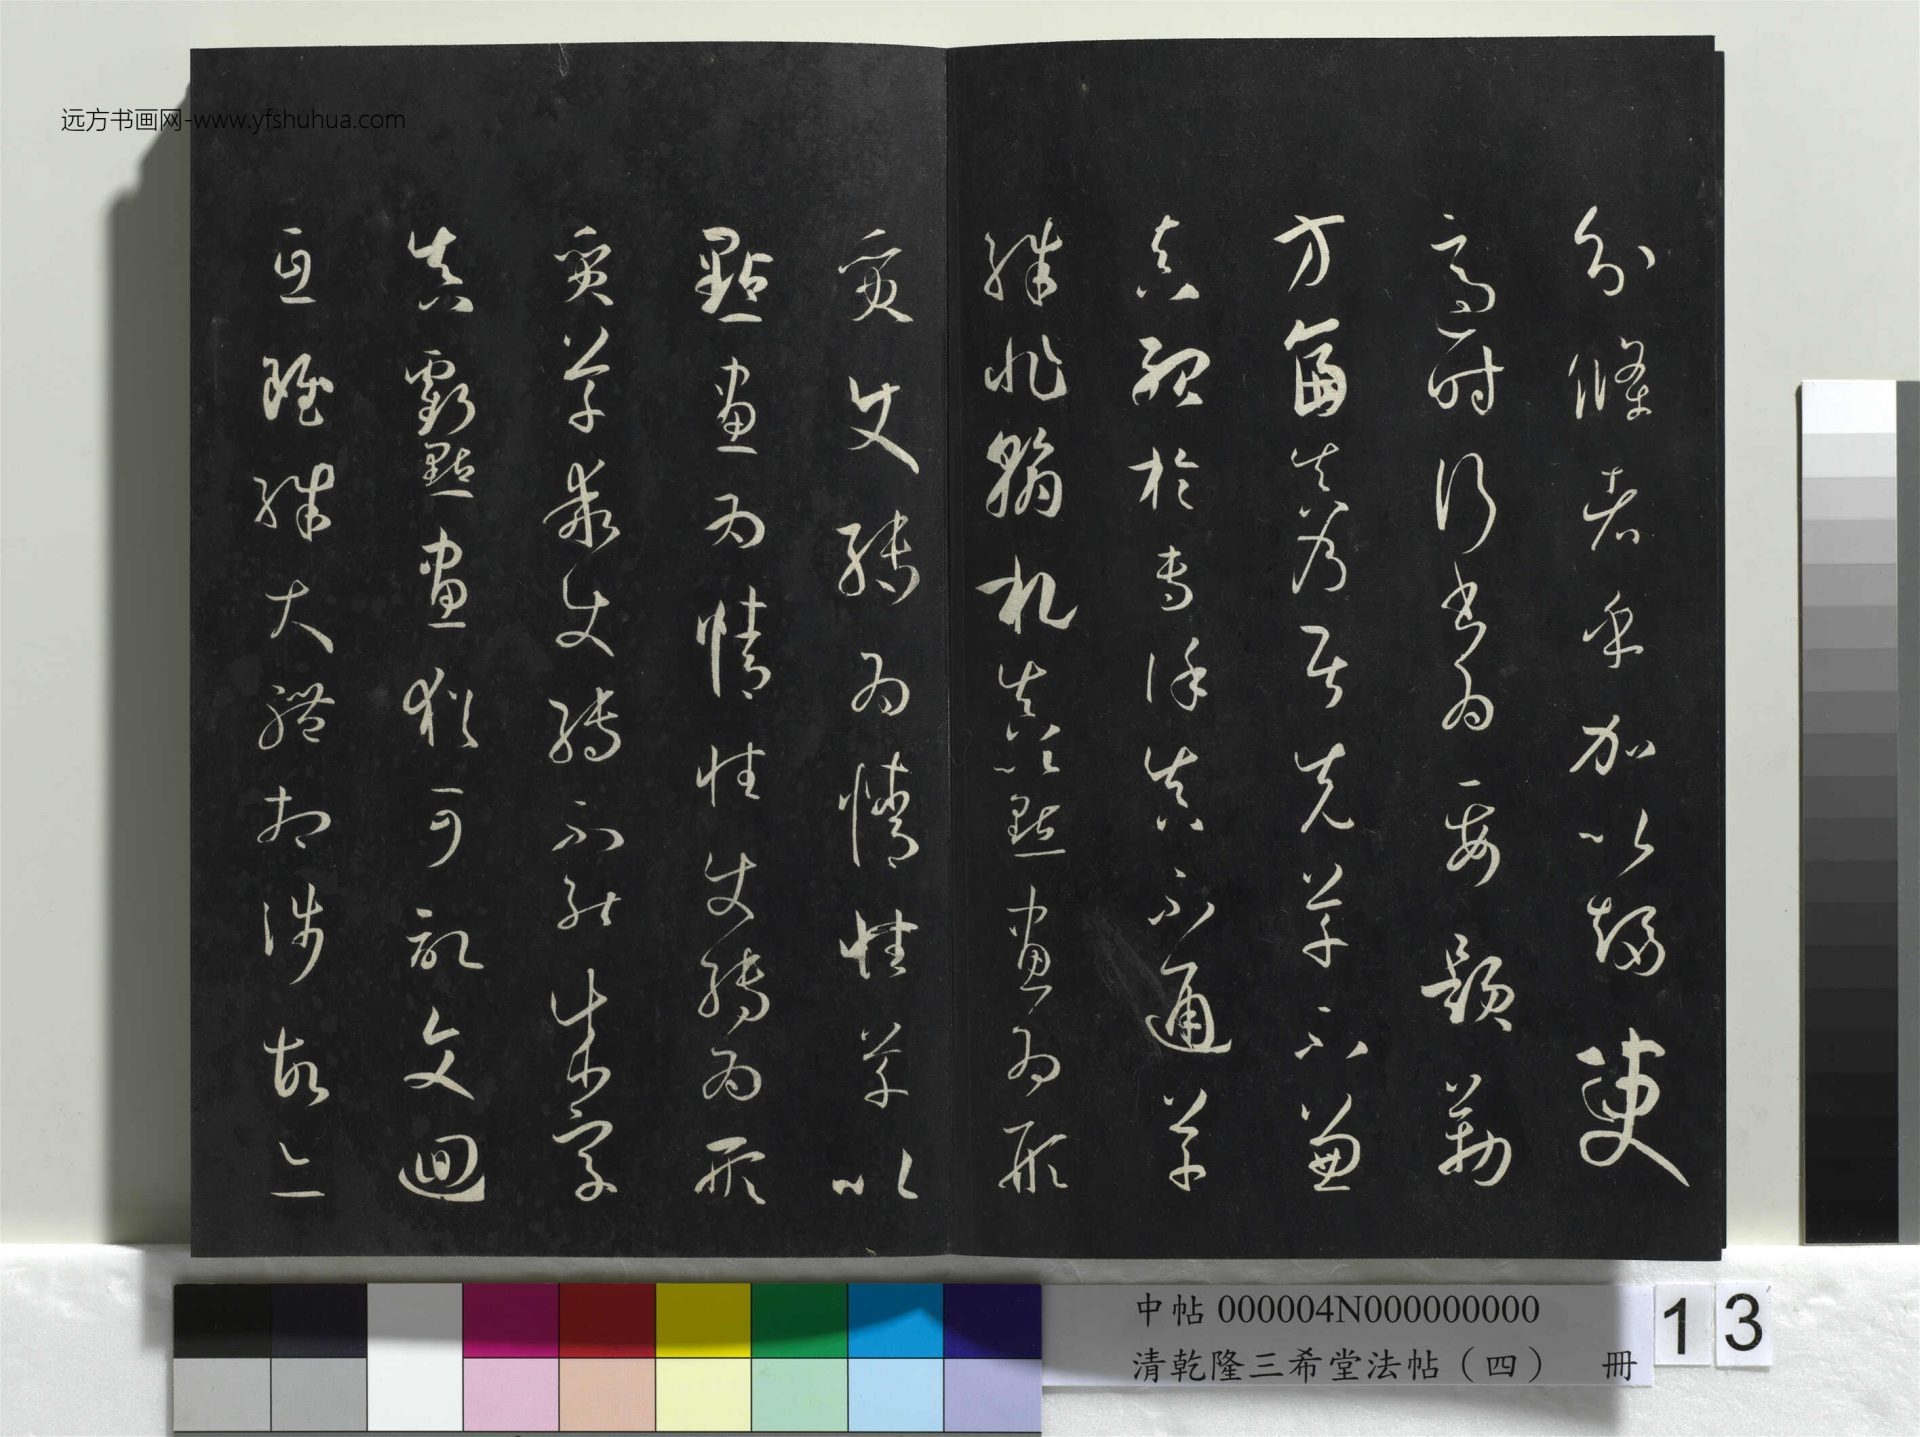 分條者乎加以趨變
適時行書為要題勒
方畐真乃居先草不兼
真殆於專謹真不通草
殊非翰札真以點畫為形
質使轉為情性草以
點畫為情性使轉為形
質草乖使轉不能成字
真虧點畫猶可記文迴
互雖殊大體相涉故亦
远方书画网-www.yfshuhua.com
中帖 000004N000000000
清乾隆三希堂法帖（四） 冊
13